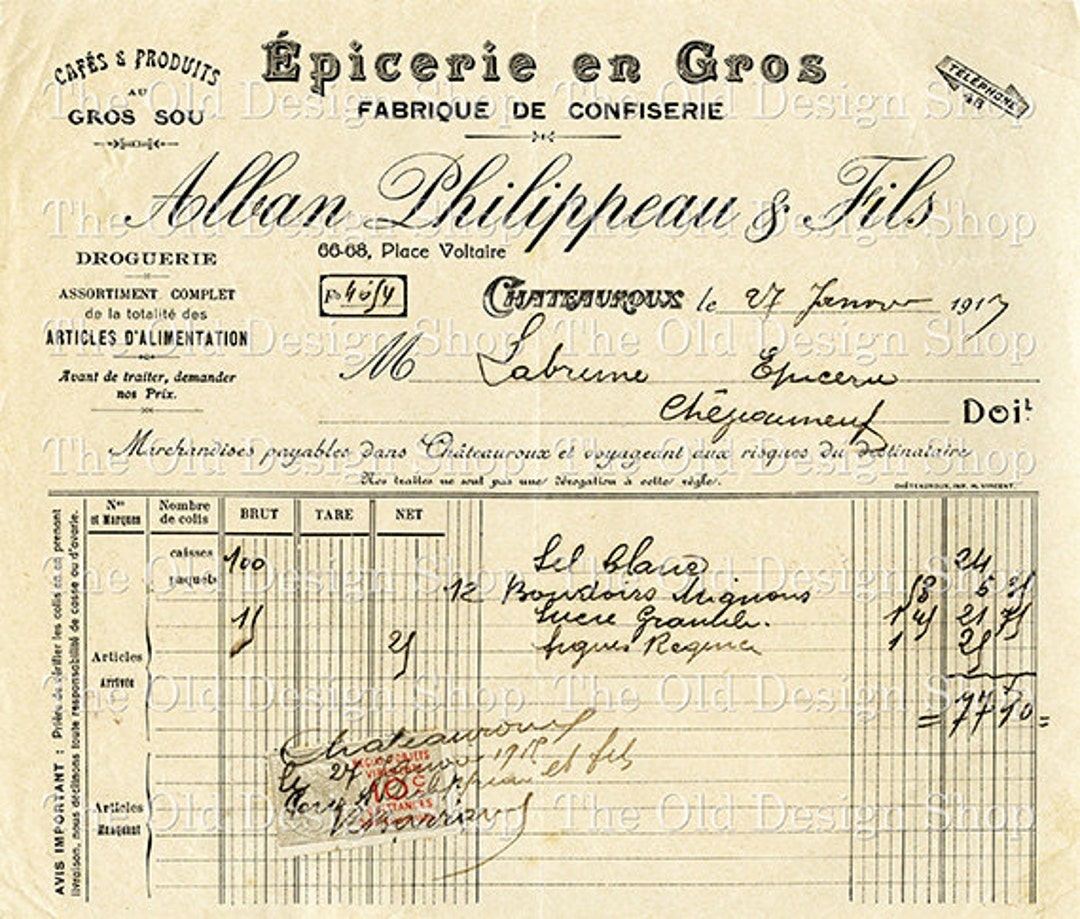 CAFÉS & PRODUITS
AU
GROS SOU
Épicerie en Gros
FABRIQUE DE CONFISERIE
TÉLÉPHONE
Alban Philippeau & Fils
66-68, Place Voltaire
DROGUERIE
ASSORTIMENT COMPLET
de la totalité des
ARTICLES D'ALIMENTATION
Avant de traiter, demander
nos Prix.
CHATEAUROUX le 27 Janvier 1917
M Labrune Epicerie
Doit
Marchandises payables dans Châteauroux et voyageant aux risques du destinataire
Nos traites ne sont pas une dérogation à cette règle.
CHÂTEAUROUX, IMP. M. VINCENT.
Nos et Marques
Nombre de colis
BRUT
TARE
NET
caisses 100 Sel blanc 24
paquets
12 Boudoirs Mignons
15 Sucre 1 45 21 75
25 Regence 1 25
= 77 50 =
Articles
Arrivée
Articles
Manquant
AVIS IMPORTANT : Prière de vérifier les colis en en prenant
livraison, nous déclinons toute responsabilité de casse ou d'avarie.
Chateauroux
le 27
Philippeau et fils
10c
The Old Design Shop